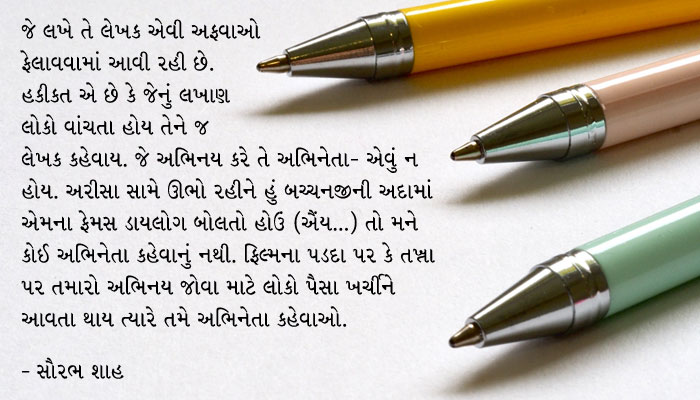 જે લખે તે લેખક એવી અફવાઓ
ફેલાવવામાં આવી રહી છે.
હકીકત એ છે કે જેનું લખાણ
લોકો વાંચતા હોય તેને જ
લેખક કહેવાય. જે અભિનય કરે તે અભિનેતા- એવું ન
હોય. અરીસા સામે ઊભો રહીને હું બચ્ચનજીની અદામાં
એમના ફેમસ ડાયલોગ બોલતો હોઉં (ઐંય...) તો મને
કોઈ અભિનેતા કહેવાનું નથી. ફિલ્મના પડદા પર કે તખ્તા
પર તમારો અભિનય જોવા માટે લોકો પૈસા ખર્ચીને
આવતા થાય ત્યારે તમે અભિનેતા કહેવાઓ.
- સૌરભ શાહ